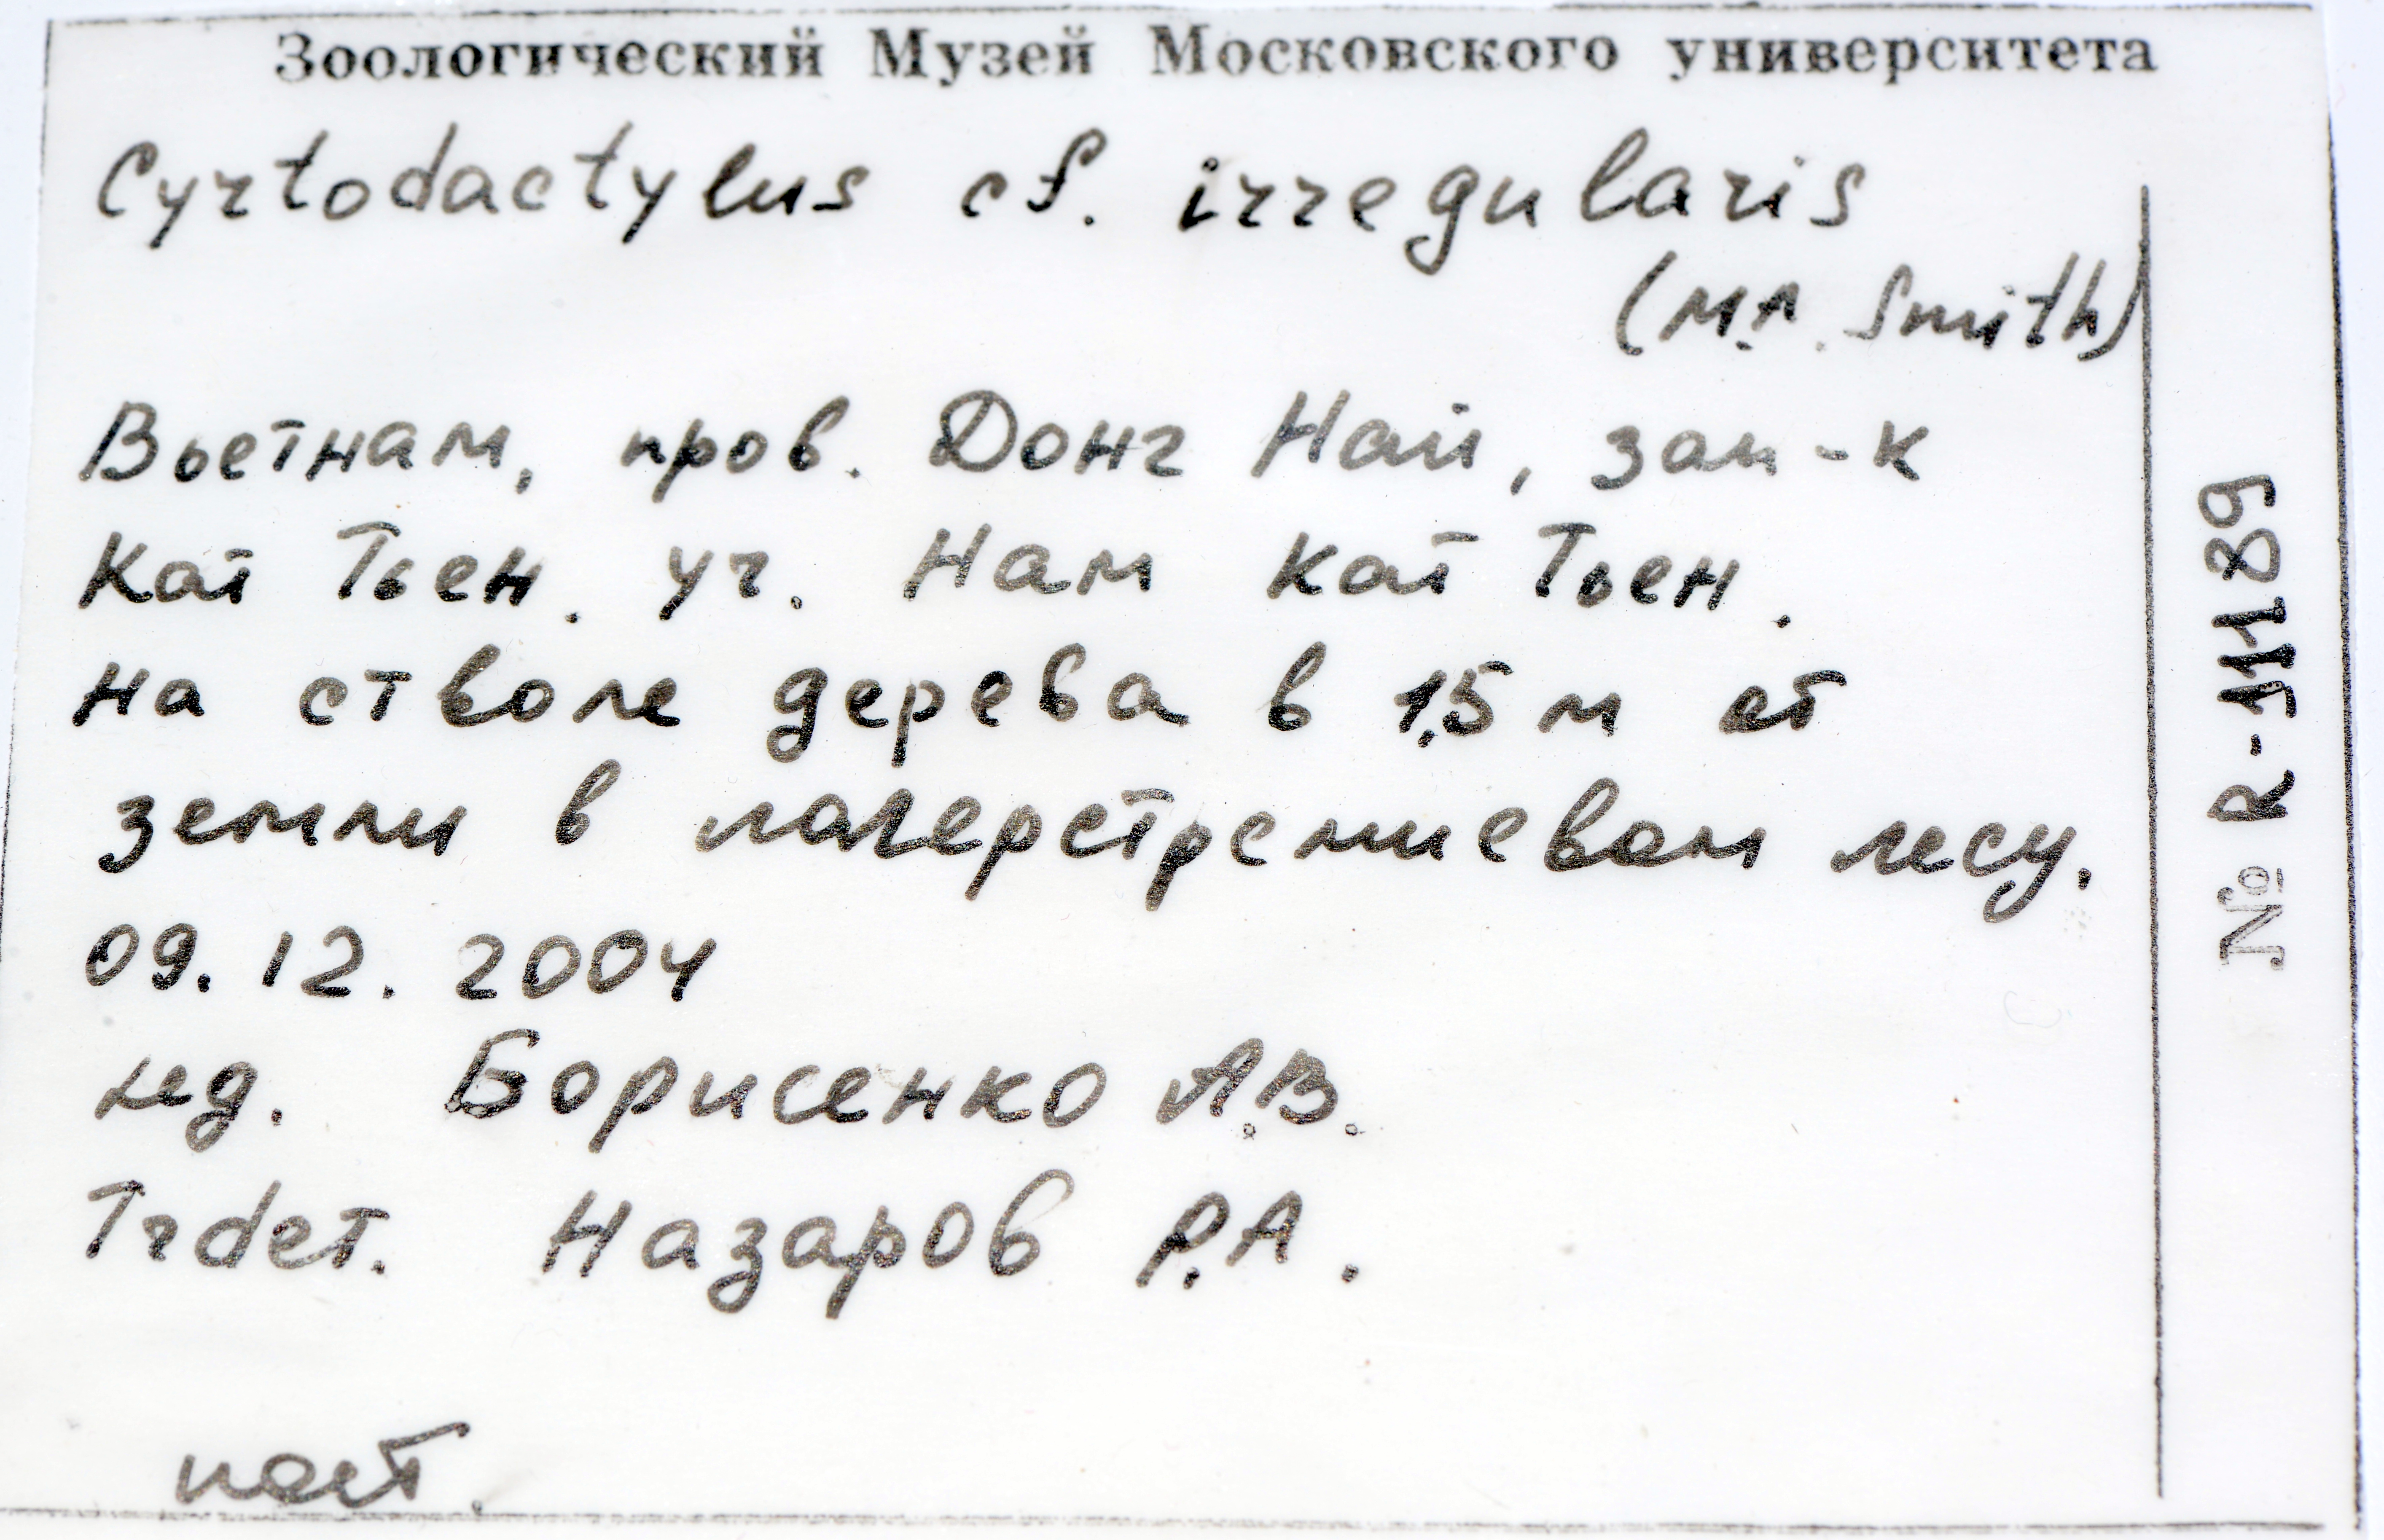 Зоологический Музей Московского университета
Cyrtodactylus cf. irregularis
(M.A. Smith)
Вьетнам, пров. Донг Най, зап-к
Кат Тьен. уч. Нам Кат Тьен.
на стволе дерева в 1,5 м от
земли в лагерстремиевом лесу.
09.12.2004
лед. Борисенко А.В.
det. Назаров Р.А.
№ R-11189